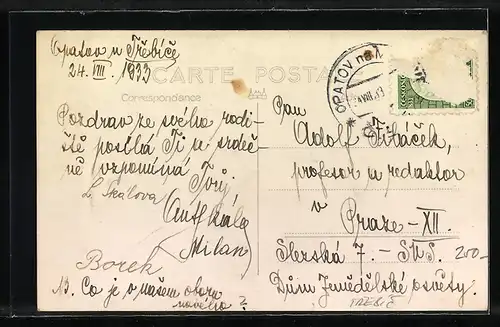 Opatov u Třebíče
24. VIII. 1933
CARTE POSTALE
Correspondance
OPATOV na M
Pozdrav ze svého rodi-
ště posílá Ti a srdeč-
ně vzpomíná
Tvůj
L. Skálová
Ant. Skála
(Milan)
Borek
B. Co je v našem oboru
nového?
Pan
Adolf
profesor a redaktor
v
Praze-XII.
Slezská 7. -
200-
Dům Zemědělské osvěty.
TREBIČ